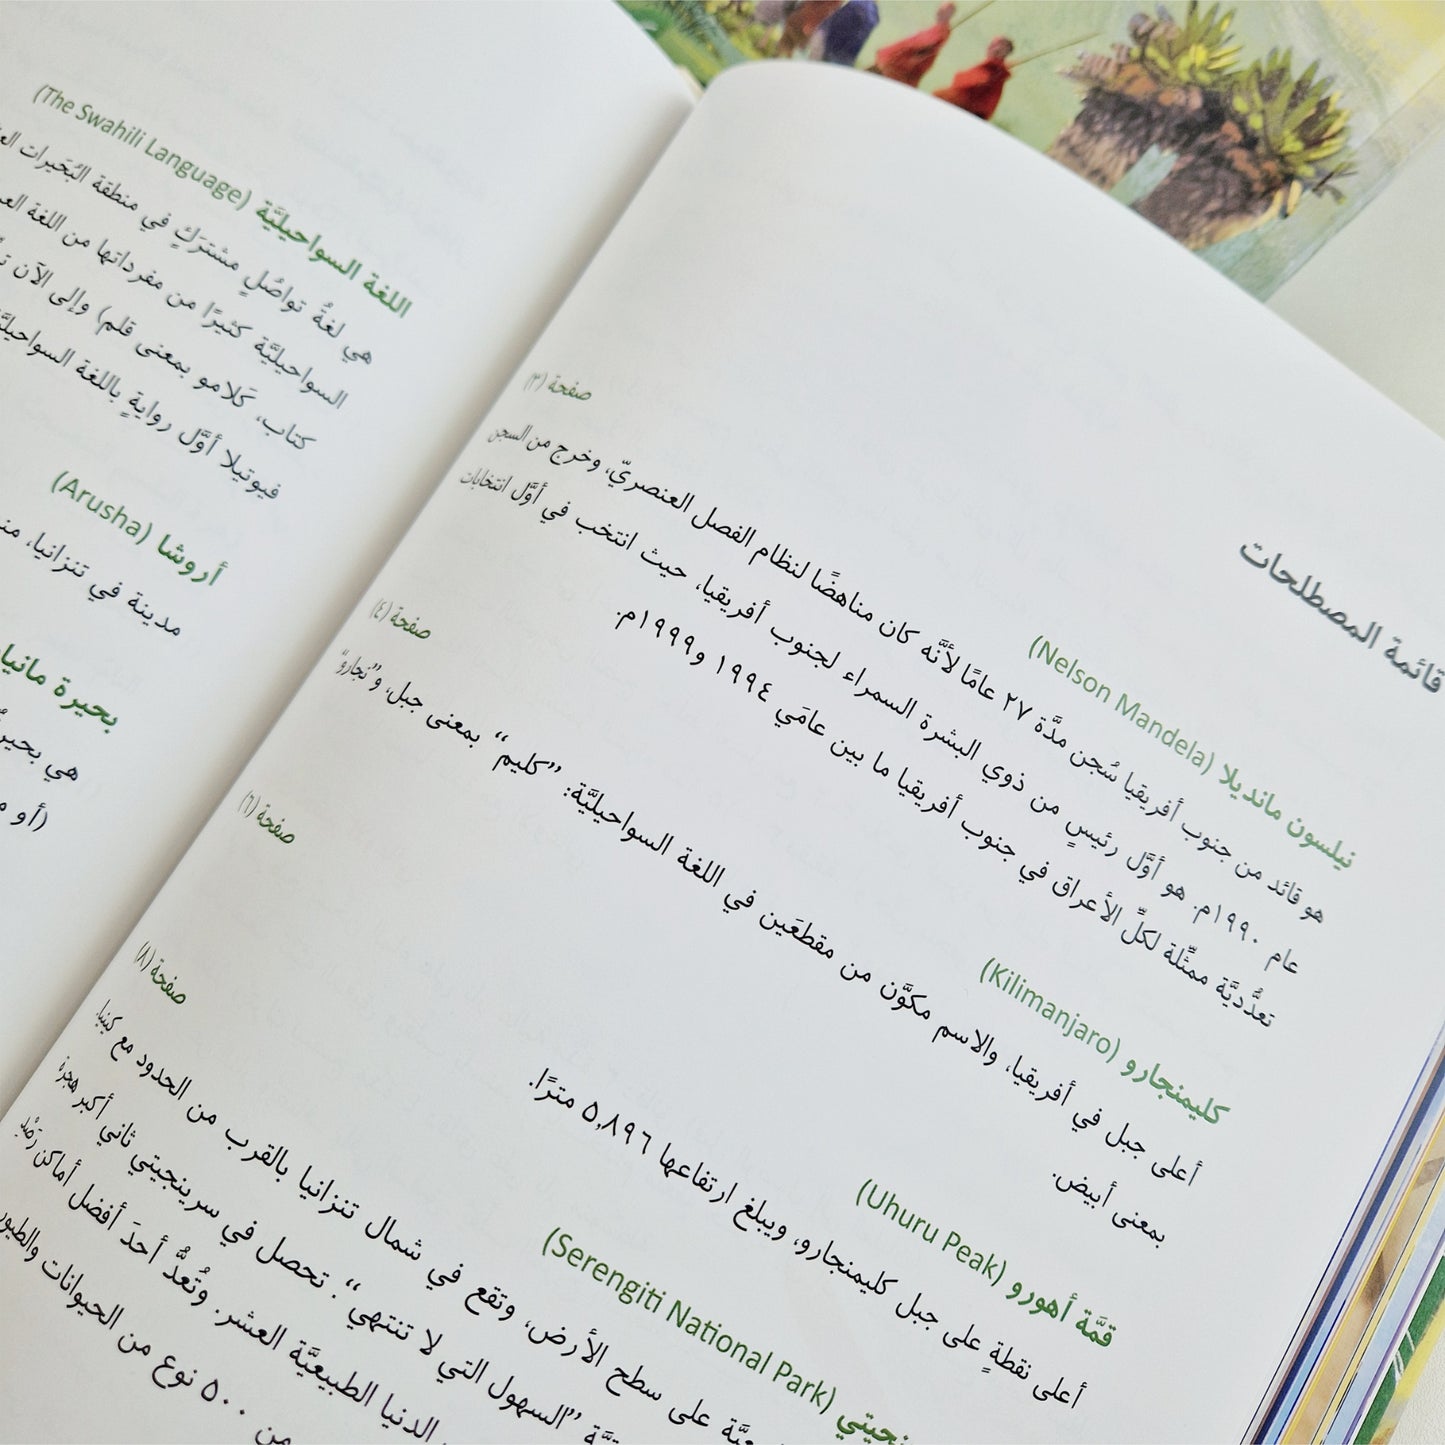 قائمة المصطلحات
نيلسون مانديلا (Nelson Mandela) صفحة (٢)
هو قائد من جنوب أفريقيا سُجن مدَّة ٢٧ عامًا لأنَّه كان مناهضًا لنظام الفصل العنصريّ، وخرج من السجن
عام ١٩٩٠م. هو أوَّل رئيسٍ من ذوي البشرة السمراء لجنوب أفريقيا، حيث انتخب في أوَّل انتخابات
تعدُّديَّة ممثِّلة لكلِّ الأعراق في جنوب أفريقيا ما بين عامَي ١٩٩٤ و١٩٩٩م.
كليمنجارو (Kilimanjaro) صفحة (٤)
أعلى جبل في أفريقيا، والاسم مكوَّن من مقطعَين في اللغة السواحيليَّة: ”كليم“ بمعنى جبل، و”نجارو“
بمعنى أبيض.
قمَّة أهورو (Uhuru Peak) صفحة (٦)
أعلى نقطةٍ على جبل كليمنجارو، ويبلغ ارتفاعها ٥,٨٩٦ مترًا.
(Serengiti National Park) صفحة (٨)
على سطح الأرض، وتقع في شمال تنزانيا بالقرب من الحدود مع كينيا.
”السهول التي لا تنتهي“. تحصل في سرينجيتي ثاني أكبر هجرة
الدنيا الطبيعيَّة العشر. وتُعدُّ أحدَ أفضل أماكن رَصْدِ
من ٥٠٠ نوع من الحيوانات والطيور
اللغة السواحيليَّة (The Swahili Language)
هي لغةُ تواصُلٍ مشترَكٍ في منطقة البُحَيرات
السواحيليَّة كثيرًا من مفرداتها من اللغة
كتاب، كَلامو بمعنى قلم) وإلى الآن
فيوتيلا أوَّل روايةٍ باللغة
أروشا (Arusha)
مدينة في تنزانيا،
بحيرة مانيا
هي
(أو